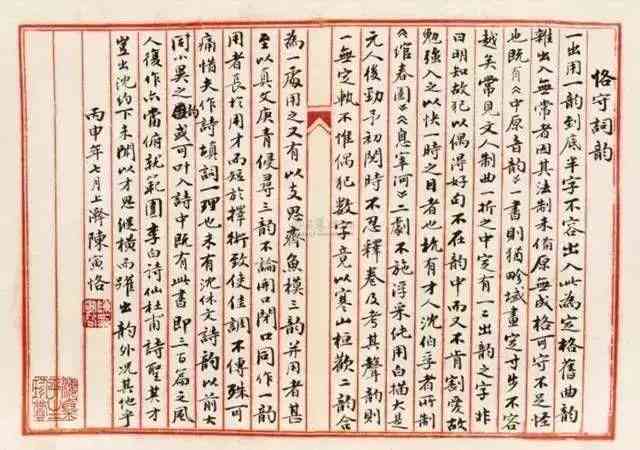 恪守詞韵
一出用一韵到底半字不容出入此為定格舊曲韵
雜出入無常者因其法制未備原無成格可守不足怪
也既有《中原音韵》一書則猶畛域畫定寸步不容
越矣常見文人制曲一折之中定有一二出韵之字非
曰明知故犯以偶得好句不在韵中而又不肯割愛故
勉强入之以快一時之目者也杭有才人沈伯孚者所制
《綰春園》《息宰河》二劇不施浮采純用白描大是
元人後勁予初閱時不忍釋卷及考其聲韵則
一無定軌不惟偶犯數字竟以寒山桓歡二韵合
為一處用之又有以支思齊魚模三韵并用者甚
至以真文庚青侵尋三韵不論開口閉口同作一韵
用者長於用才而短於擇術致使佳調不傳殊可
痛惜夫作詩填詞一理也未有沈休文詩韵以前大
同小異之韵或可叶入詩中既有此書即三百篇之風
人復作亦當俯就範圍李白詩仙杜甫詩聖其才
豈出沈約下未聞以才思縱横而躍出韵外况其他乎
丙申年七月上澣陳寅恪